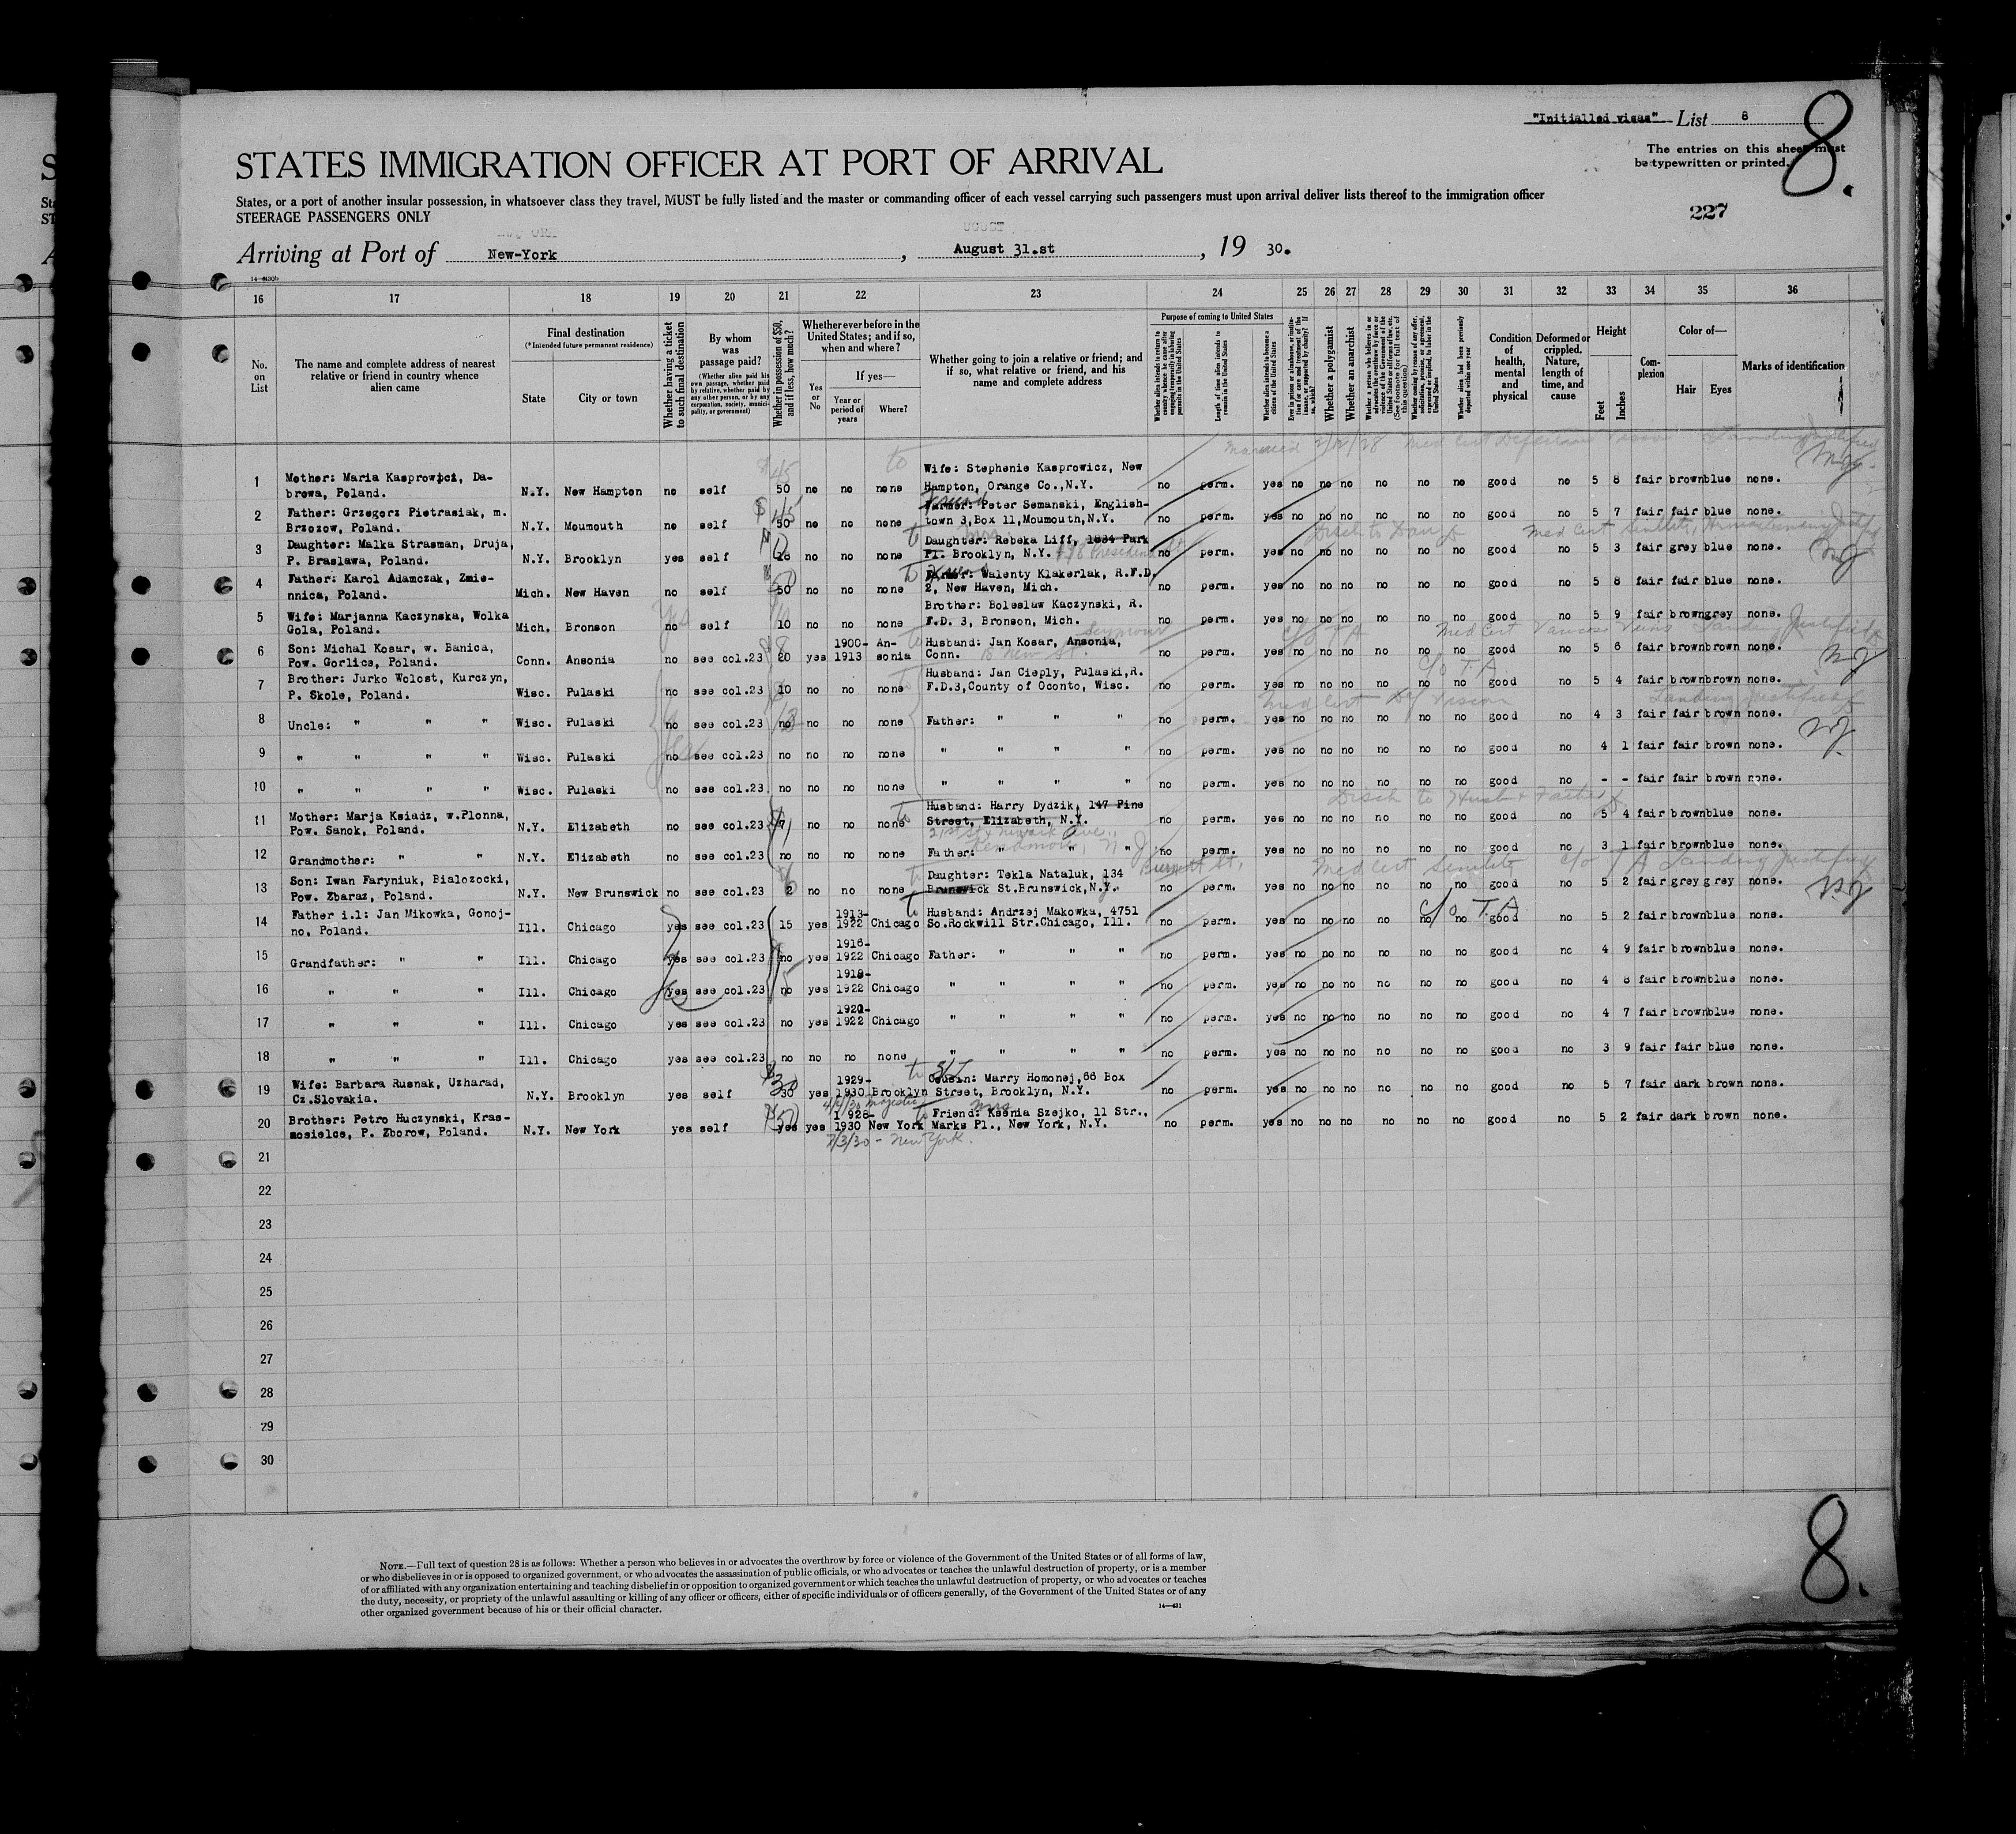 "Initialled visas" List 8
8.
The entries on this sheet must
be typewritten or printed.
STATES IMMIGRATION OFFICER AT PORT OF ARRIVAL
States, or a port of another insular possession, in whatsoever class they travel, MUST be fully listed and the master or commanding officer of each vessel carrying such passengers must upon arrival deliver lists thereof to the immigration officer
STEERAGE PASSENGERS ONLY
227
Arriving at Port of New-York, August 31.st, 19 30.
16 17 18 19 20 21 22 23 24 25 26 27 28 29 30 31 32 33 34 35 36
No. on List
The name and complete address of nearest relative or friend in country whence alien came
Final destination
(*Intended future permanent residence)
State City or town
Whether having a ticket to such final destination
By whom was passage paid?
(Whether alien paid his own passage, whether paid by relative, whether paid by any other person, or by any corporation, society, municipality, or government)
Whether in possession of $50, and if less, how much?
Whether ever before in the United States; and if so, when and where?
Yes or No
If yes—
Year or period of years Where?
Whether going to join a relative or friend; and if so, what relative or friend, and his name and complete address
Purpose of coming to United States
Length of time alien intends to remain in the United States
Whether alien intends to become a citizen of the United States
Whether a polygamist
Whether an anarchist
Condition of health, mental and physical
Deformed or crippled. Nature, length of time, and cause
Height
Feet Inches
Complexion
Color of—
Hair Eyes
Marks of identification
Married 2/12/28 Med Cert Defective Vision Landing Justified
1 Mother: Maria Kasprowicz, Dabrowa, Poland. N.Y. New Hampton no self 50 no no none Wife: Stephenie Kasprowicz, New Hampton, Orange Co.,N.Y. no perm. yes no no no no no no good no 5 8 fair brown blue none.
2 Father: Grzegorz Pietrasiak, m. Brzozow, Poland. N.Y. Moumouth no self 50 no no none Farmer: Peter Semanski, Englishtown 3,Box 11,Moumouth,N.Y. no perm. yes no no no no no no good no 5 7 fair fair blue none.
Friend
Disch to Daugh Med Cert Senility
3 Daughter: Malka Strasman, Druja, P. Braslawa, Poland. N.Y. Brooklyn yes self no no none Daughter: Rebeka Liff, 1884 Park Pl. Brooklyn, N.Y. no perm. yes no no no no no no good no 5 3 fair grey blue none.
4 Father: Karol Adamczak, Zmiennica, Poland. Mich. New Haven no self 50 no no none Farmer: Walenty Klakerlak, R.F.D. 2, New Haven, Mich. no perm. yes no no no no no no good no 5 8 fair fair blue none.
5 Wife: Marjanna Kaczynska, Wolka Gola, Poland. Mich. Bronson no self 10 no no none Brother: Boleslaw Kaczynski, R.F.D. 3, Bronson, Mich. no perm. yes no no no no no no good no 5 9 fair brown grey none.
Seymour c/o T A Med Cert Varicose Veins Landing Justified
6 Son: Michal Kosar, w. Banica, Pow. Gorlice, Poland. Conn. Ansonia no see col.23 20 yes 1900-1913 Ansonia Husband: Jan Kosar, Ansonia, Conn. no perm. yes no no no no no no good no 5 6 fair brown brown none.
c/o T.A.
7 Brother: Jurko Wolost, Kurczyn, P. Skole, Poland. Wisc. Pulaski no see col.23 10 no no none Husband: Jan Cieply, Pulaski,R.F.D.3,County of Oconto, Wisc. no perm. yes no no no no no no good no 5 4 fair brown brown none.
Med Cert Def Vision Landing Justified
8 Uncle: " " " Wisc. Pulaski no see col.23 no no no none Father: " " " no perm. yes no no no no no no good no 4 3 fair fair brown none.
9 " " " " Wisc. Pulaski no see col.23 no no no none " " " " no perm. yes no no no no no no good no 4 1 fair fair brown none.
10 " " " " Wisc. Pulaski no see col.23 no no no none " " " " no perm. yes no no no no no no good no - - fair fair brown none.
Disch to Husb + Father
11 Mother: Marja Ksiadz, w.Plonna, Pow. Sanok, Poland. N.Y. Elizabeth no see col.23 no no none Husband: Harry Dydzik, 147 Pine Street, Elizabeth, N.Y. no perm. yes no no no no no no good no 5 4 fair brown blue none.
12 Grandmother: " " N.Y. Elizabeth no see col.23 no no no none Father: " " " no perm. yes no no no no no no good no 3 1 fair brown blue none.
Med Cert Senility c/o T A Landing Justified
13 Son: Iwan Faryniuk, Bialozocki, Pow. Zbaraz, Poland. N.Y. New Brunswick no see col.23 2 no no none Daughter: Tekla Nataluk, 134 Brunswick St.Brunswick,N.Y. no perm. yes no no no no no no good no 5 2 fair grey grey none.
c/o T.A
14 Father i.l: Jan Mikowka, Gonojno, Poland. Ill. Chicago yes see col.23 15 yes 1913-1922 Chicago Husband: Andrzej Makowka, 4751 So.Rockwill Str.Chicago, Ill. no perm. yes no no no no no no good no 5 2 fair brown blue none.
15 Grandfather: " " Ill. Chicago yes see col.23 no yes 1916-1922 Chicago Father: " " " no perm. yes no no no no no no good no 4 9 fair brown blue none.
16 " " " Ill. Chicago yes see col.23 no yes 1918-1922 Chicago " " " " no perm. yes no no no no no no good no 4 8 fair brown blue none.
17 " " " Ill. Chicago yes see col.23 no yes 1920-1922 Chicago " " " " no perm. yes no no no no no no good no 4 7 fair brown blue none.
18 " " " Ill. Chicago yes see col.23 no no no none " " " " no perm. yes no no no no no no good no 3 9 fair fair blue none.
19 Wife: Barbara Rusnak, Uzharad, Cz.Slovakia. N.Y. Brooklyn yes self 30 yes 1929-1930 Brooklyn Cousin: Marry Homonej,66 Box Street, Brooklyn, N.Y. no perm. yes no no no no no no good no 5 7 fair dark brown none.
Majestic Mrs
20 Brother: Petro Huczynski, Krasnosielce, P. Zborow, Poland. N.Y. New York yes self yes yes 1928-1930 New York Friend: Ksenia Szejko, 11 Str., Marks Pl., New York, N.Y. no perm. yes no no no no no no good no 5 2 fair dark brown none.
7/3/30 - New York.
21
22
23
24
25
26
27
28
29
30
NOTE.—Full text of question 28 is as follows: Whether a person who believes in or advocates the overthrow by force or violence of the Government of the United States or of all forms of law,
or who disbelieves in or is opposed to organized government, or who advocates the assassination of public officials, or who advocates or teaches the unlawful destruction of property, or is a member
of or affiliated with any organization entertaining and teaching disbelief in or opposition to organized government or which teaches the unlawful destruction of property, or who advocates or teaches
the duty, necessity, or propriety of the unlawful assaulting or killing of any officer or officers, either of specific individuals or of officers generally, of the Government of the United States or of any
other organized government because of his or their official character.
14—431
8.